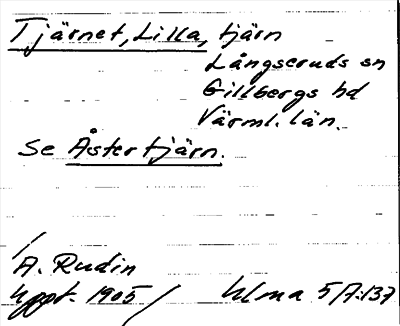 Tjärnet, Lilla, tjärn
Långseruds sn
Gillbergs hd
Värml. län.
Se Åstertjärn.
A. Rudin
Uppt. 1905 / Ulma 57:137